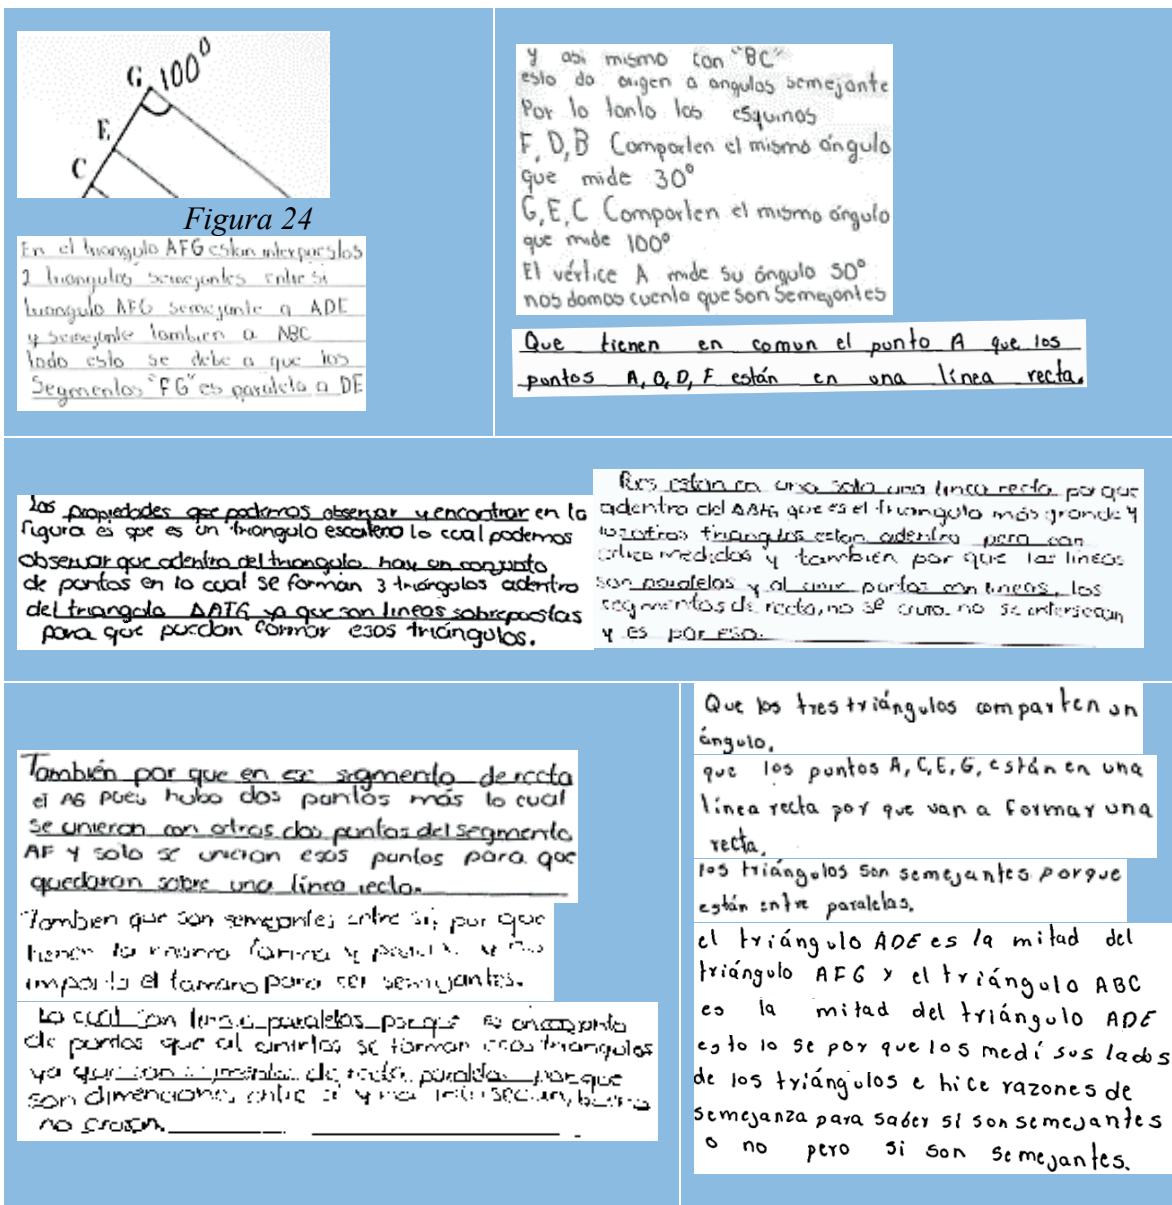 G 100°
E
C
Figura 24
En el triangulo AFG estan interpuestos
2 triangulos semejantes entre si
triangulo AFG semejante a ADE
y semejante tambien a ABC
todo esto se debe a que los
Segmentos "FG" es paralelo a DE
y asi mismo con "BC"
esto da origen a angulos semejante
Por lo tanto las esquinas
F, D, B Comparten el mismo ángulo
que mide 30°
G, E, C Comparten el mismo ángulo
que mide 100°
El vértice A mide su ángulo 50°
nos damos cuenta que son Semejantes
Que tienen en comun el punto A que los
puntos A, B, D, F están en una línea recta.
Las propiedades que podemos observar y encontrar en la
figura es que es un triangulo escaleno lo cual podemos
observar que adentro del triangulo hay un conjunto
de puntos en lo cual se forman 3 triángulos adentro
del triangulo ya que son lineas sobrepuestas
para que puedan formar esos triángulos.
Pues estan en una sola una linea recta porque
adentro del que es el triangulo más grande y
los otros triangulos estan adentro pero con
medidas y también por que las lineas
son paralelas y al unir puntos con lineas, los
segmentos de recta, no se cruza. no se intersecan
y es por eso.
También por que en ese segmento de recta
el AG pues hubo dos puntos más lo cual
se unieron con otros dos puntos del segmento
AF y solo se unieron esos puntos para que
quedaran sobre una línea recta.
Tambien que son semejantes entre si, por que
tienen la misma forma y y no
importa el tamano para ser semejantes.
Lo cual son paralelas porque es un conjunto
de puntos que al unirlos se forman esos triangulos
ya que son segmentos de recta paralelas porque
son dimenciones entre si y no intersecan, bueno
no cruzan.
Que los tres triángulos comparten un
ángulo.
que los puntos A, C, E, G, están en una
línea recta por que van a formar una
recta.
los triángulos son semejantes porque
están entre paralelas.
el triángulo ADE es la mitad del
triángulo AFG y el triángulo ABC
es la mitad del triángulo ADE
esto lo se por que los medí sus lados
de los triángulos e hice razones de
semejanza para saber si son semejantes
o no pero si son semejantes.